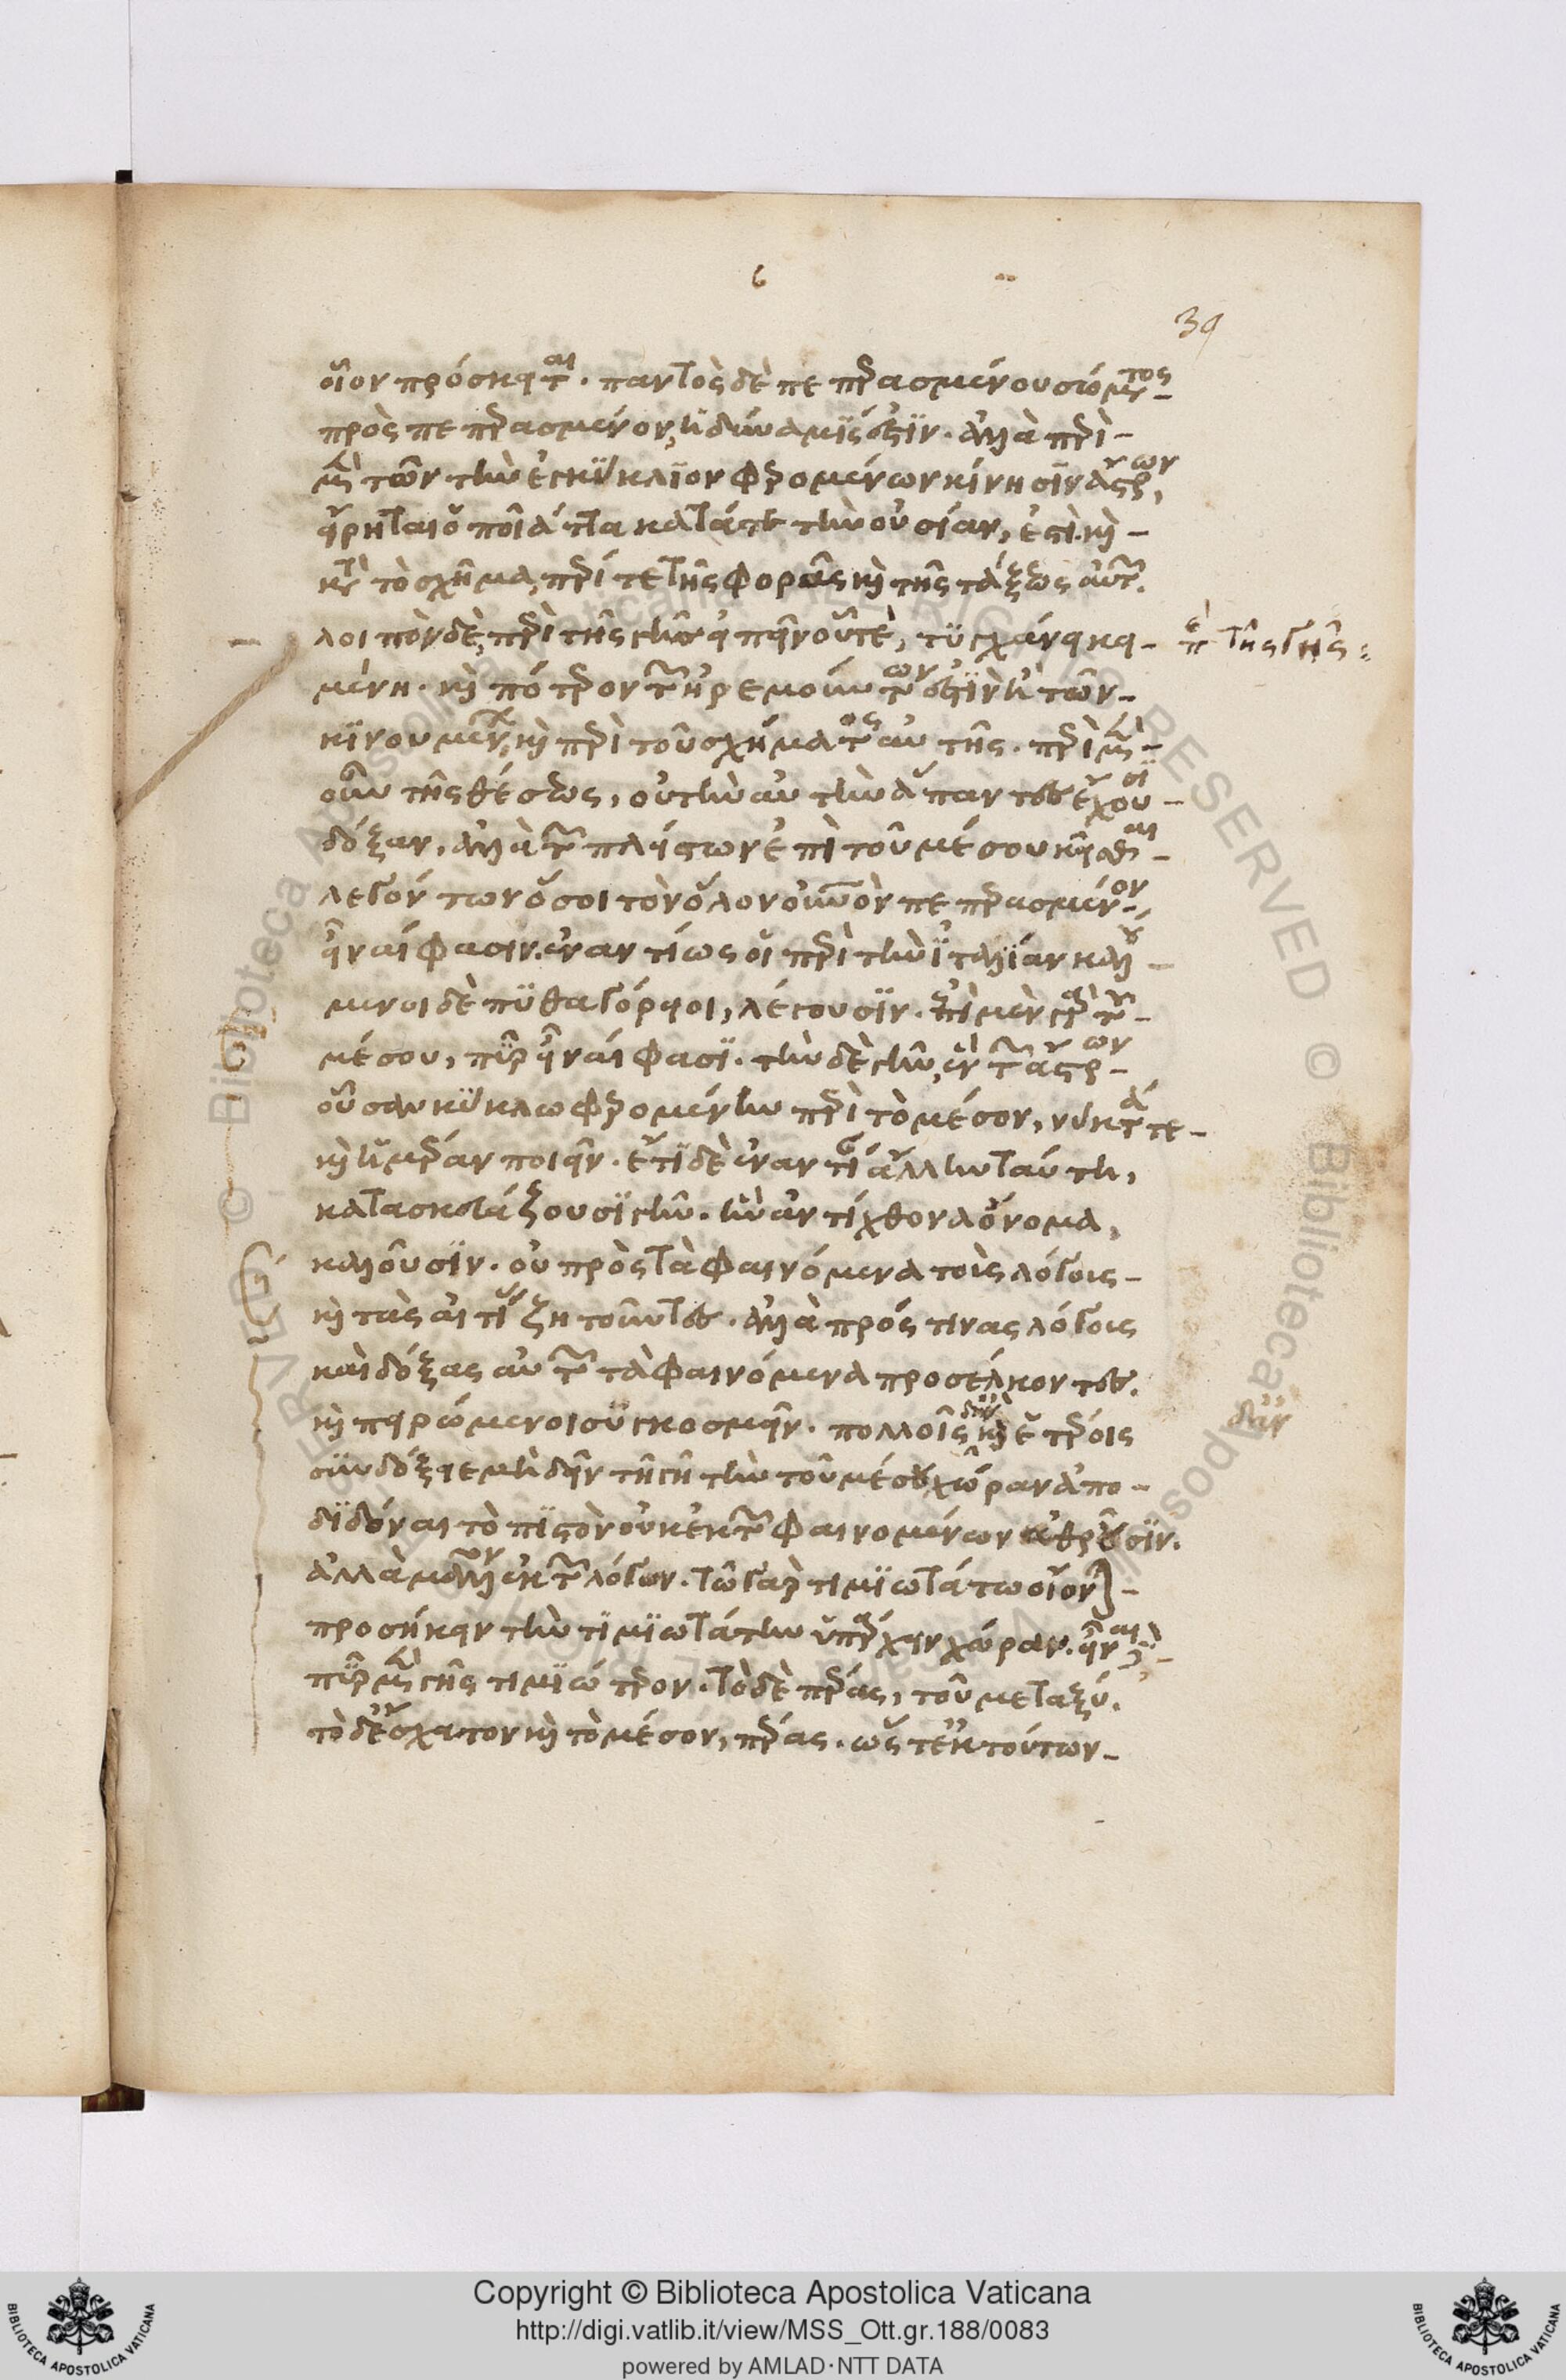 6
39
οἷον πρόσκειται. παντὸς δὲ πεπερασμένου σώματος
πρὸς πεπερασμένον, ἡ δύναμίς ἐστιν. ἀλλὰ περὶ
μὲν τῶν τὴν ἐγκύκλιον φερομένων κίνησιν ἄστρων,
εἴρηται ὁποῖα ἄττα κατά τε τὴν οὐσίαν, ἐστὶ καὶ
κατὰ τὸ σχῆμα, περί τε τῆς φορᾶς καὶ τῆς τάξεως αὐτῶν.
λοιπὸν δὲ, περὶ τῆς γῆν εἰπεῖν οὗ τὲ, τυγχάνει κει
περὶ τῆς γῆς:
μένη. καὶ πότερον τῶν ἠρεμούντων ἐστὶν ἢ τῶν
κινουμένων, καὶ περὶ τοῦ σχήματος αὐτῆς. περὶ μὲν
οὖν τῆς θέσεως, οὐ τὴν αὐτὴν ἅπαντες ἔχουσι
δόξαν, ἀλλὰ τῶν πλείστων ἐπὶ τοῦ μέσου κεῖσθαι
λεγόντων ὅσοι τὸν ὅλον οὐρανὸν πεπερασμένον,
εἶναί φασιν. ἐναντίως οἱ περὶ τὴν ἰταλίαν καλού
μενοι δὲ πυθαγόρειοι, λέγουσιν. ἐπὶ μὲν γὰρ τοῦ
μέσου, πῦρ εἶναί φασι. τὴν δὲ γῆν, ἓν τῶν ἄστρων
οὖσαν κύκλω φερομένην περὶ τὸ μέσον, νύκτά τε
καὶ ἡμέραν ποιεῖν. ἔτι δὲ ἐναντίαν ἄλλην ταύτη,
κατασκευάζουσι γῆν. ἣν ἀντίχθονα ὄνομα,
καλοῦσιν. οὐ πρὸς τὰ φαινόμενα τοὺς λόγους
καὶ τὰς αἰτίας ζητοῦντες. ἀλλὰ πρός τινας λόγους
καὶ δόξας αὐτῶν τὰ φαινόμενα προσέλκοντες.
καὶ πειρώμενοι συγκοσμεῖν. πολλοῖς δὰν καὶ ἑτέροις
δὰν
συνδόξειε μὴ δεῖν τῆ γῆ τὴν τοῦ μέσου χώραν ἀπο
διδόναι τὸ πιστὸν οὐκ ἐκ τῶν φαινομένων ἀθροῦσιν.
ἀλλὰ μᾶλλον ἐκ τῶν λόγων. τῶ γὰρ τιμιωτάτω οἷον
προσήκειν τὴν τιμιωτάτην ὑπάρχειν χώραν. εἶναι δὲ
πῦρ μὲν γῆς τιμιώτερον. τὸ δὲ πέρας, τοῦ μεταξύ.
τὸ δ' ἔσχατον καὶ τὸ μέσον, πέρας. ὥστ' ἐκ τούτων
Copyright © Biblioteca Apostolica Vaticana
http://digi.vatlib.it/view/MSS_Ott.gr.188/0083
powered by AMLAD·NTT DATA
BIBLIOTECA APOSTOLICA VATICANA
BIBLIOTECA APOSTOLICA VATICANA